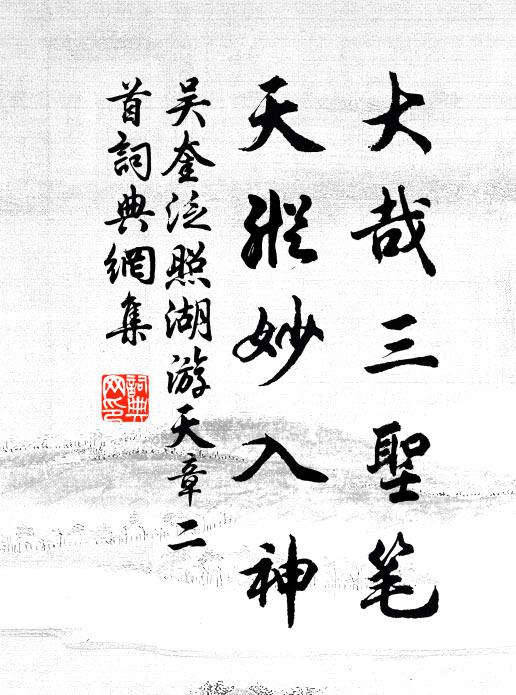 大哉三聖笔
天縱妙入神
吴奎泛照湖游天章二
首詞典網集
詞典网印